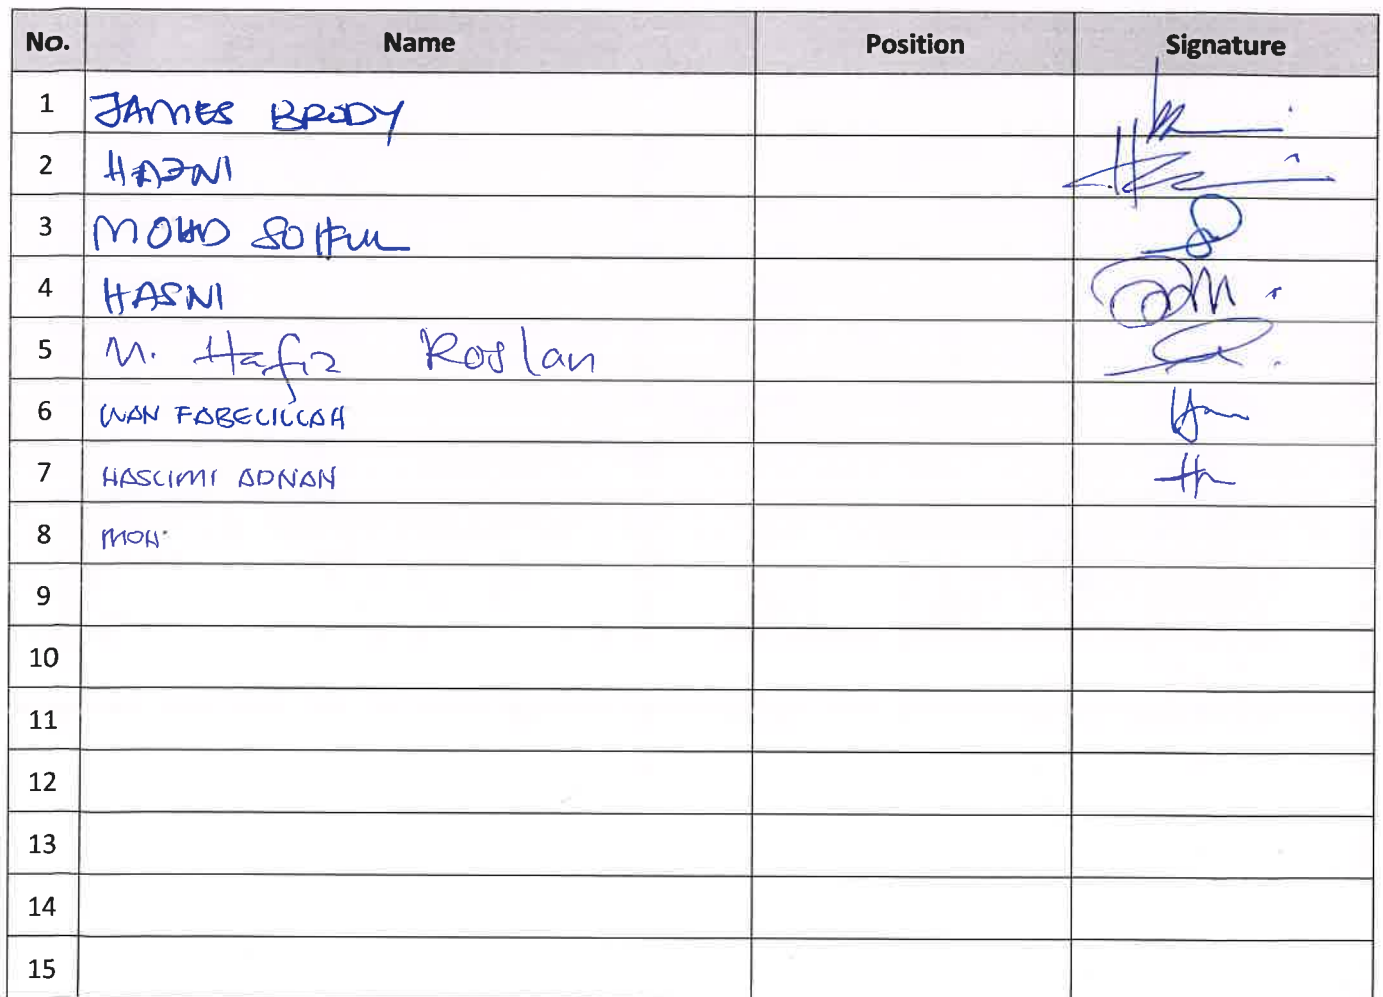 No. Name Position Signature
1 JAMES BRODY
2 HAZNI
3 MOHD
4 HASNI
5 M. Hafiz Roslan
6 WAN FABELILLAH
7 HASLIMI ADNAN
8 MOH
9
10
11
12
13
14
15